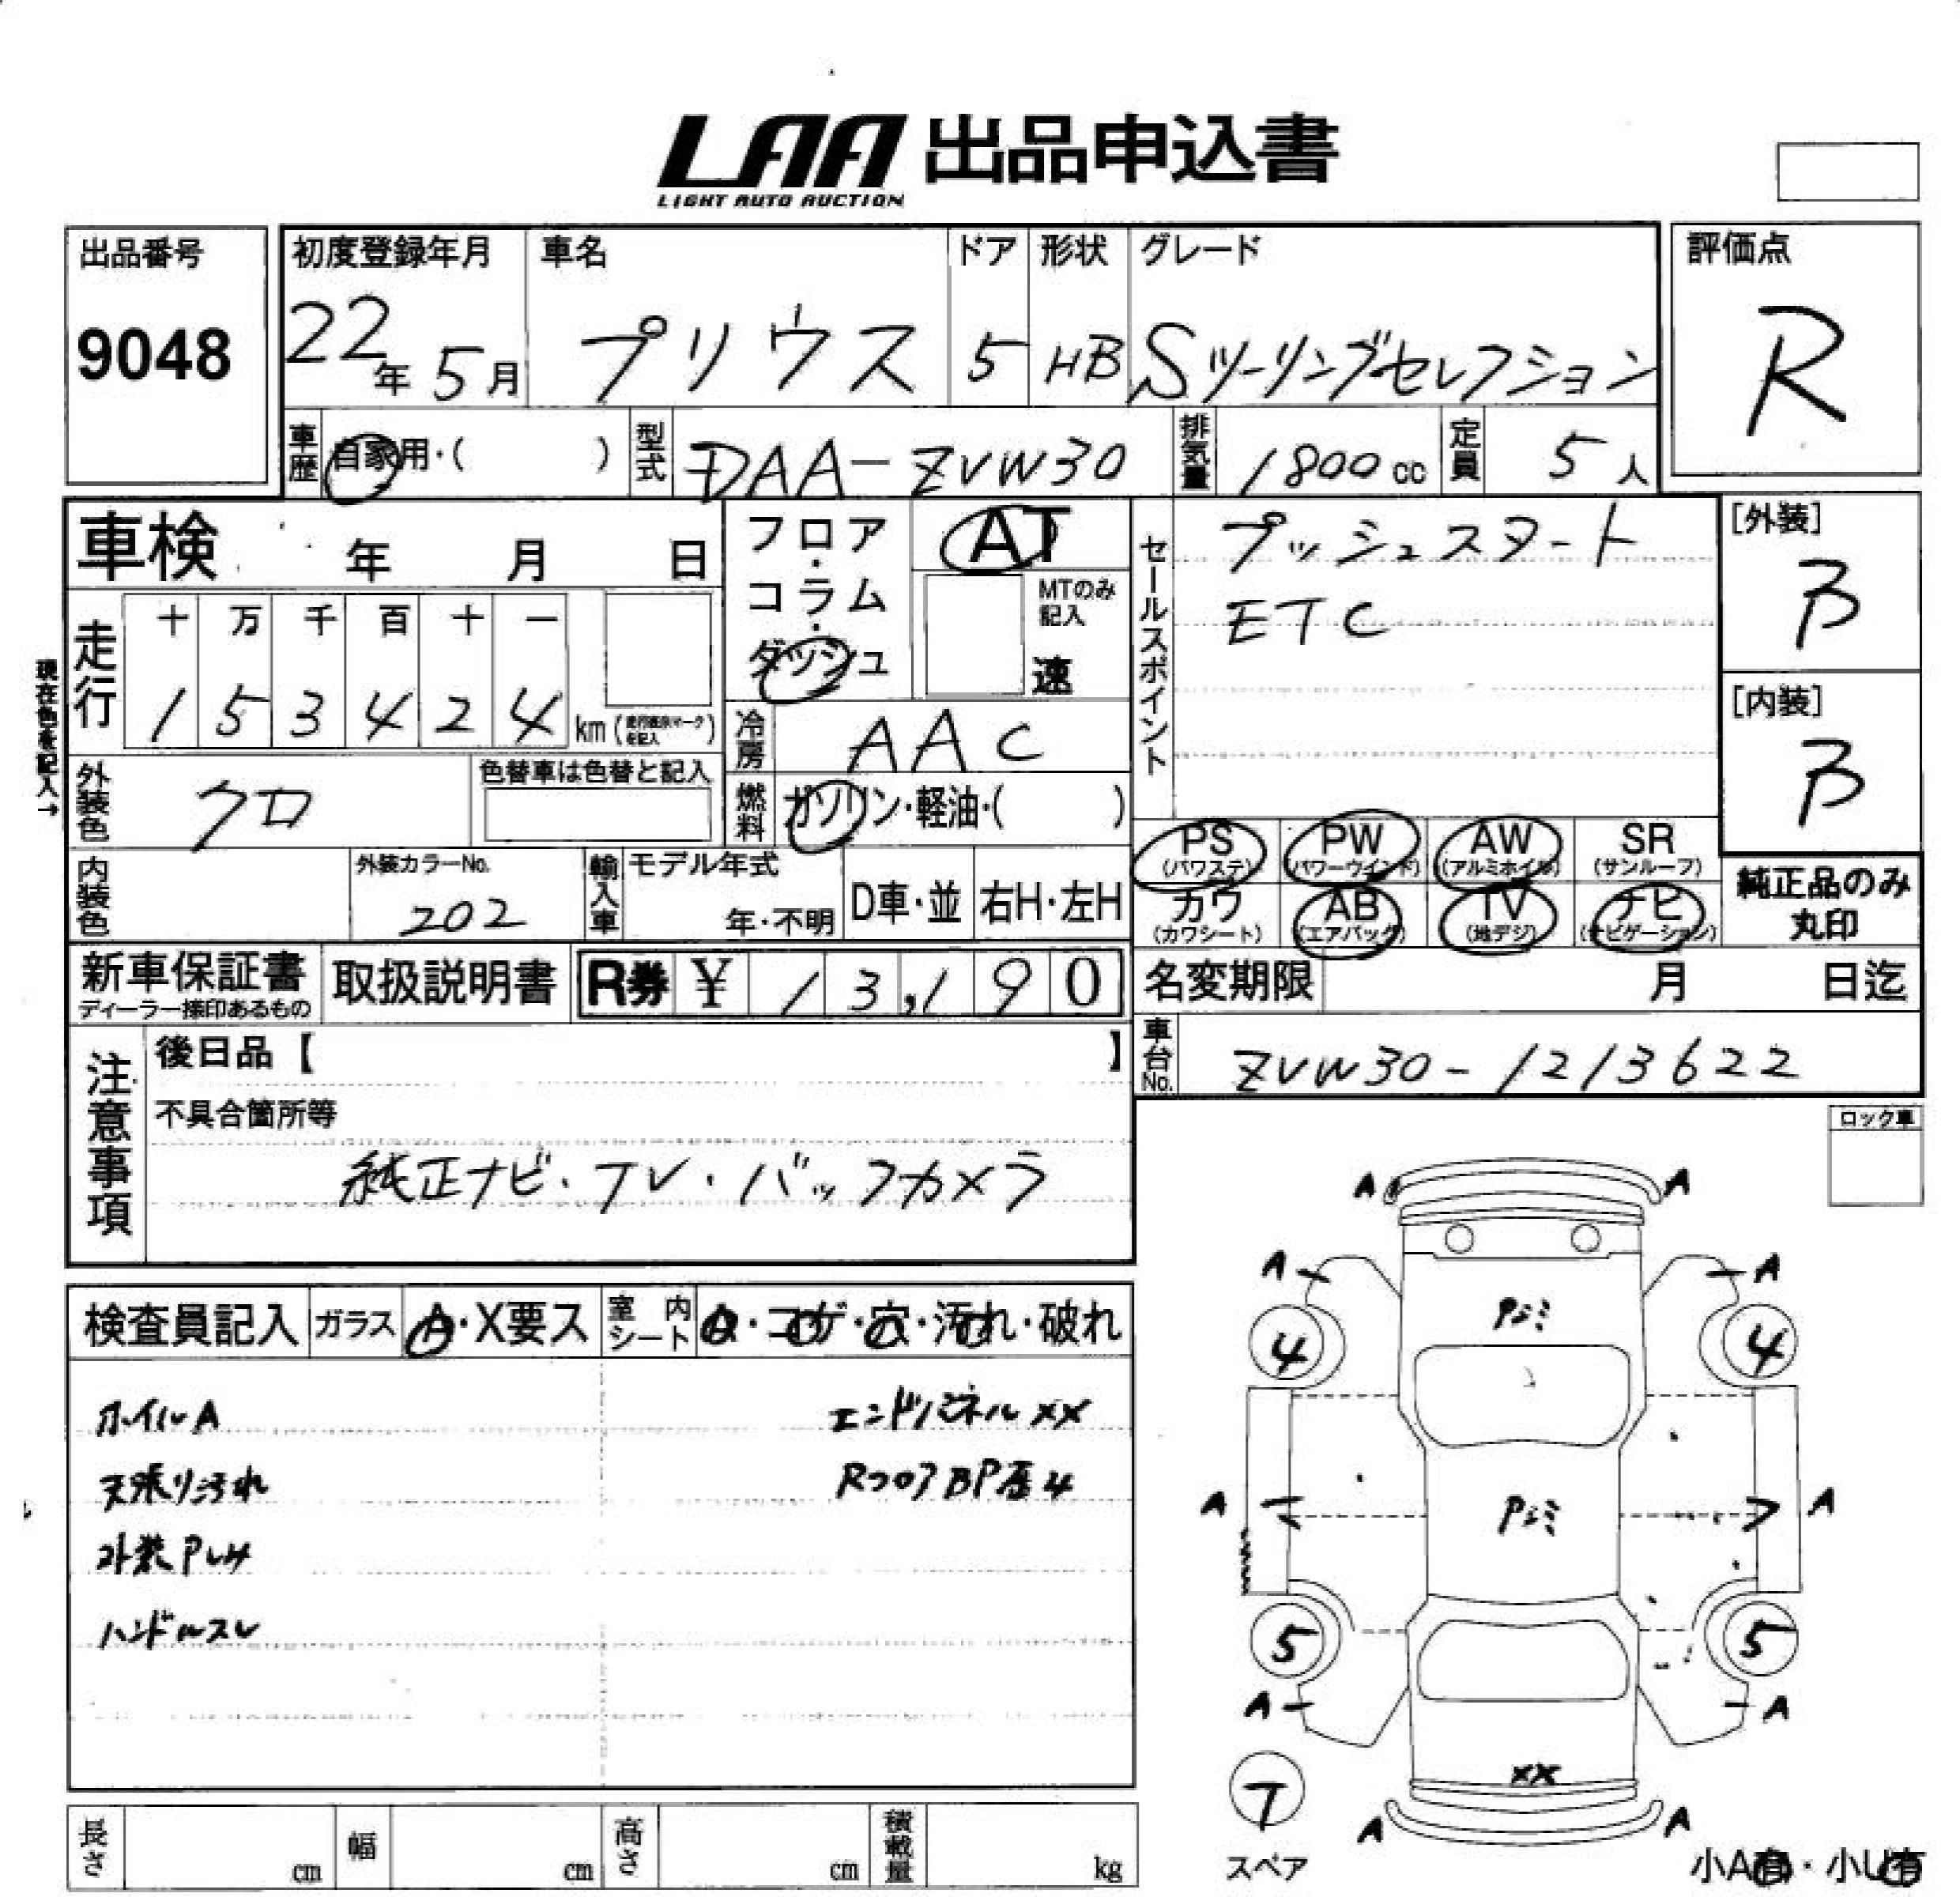 LAA 出品申込書
LIGHT AUTO AUCTION
出品番号
9048
初度登録年月
22年 5月
車名
プリウス
ドア
5
形状
HB
グレード
Sツーリングセレクション
評価点
R
車歴 自家用・( )
型式 DAA-ZVW30
排気量 1800cc
定員 5人
車検 年 月 日
フロア・コラム・ダッシュ
AT
MTのみ記入
速
セールスポイント
プッシュスタート
ETC
[外装]
B
[内装]
B
現在色を記入→
走行
十 万 千 百 十 一
1 5 3 4 2 4 km (走行距離マークを記入)
冷房 AAC
外装色 クロ
色替車は色替と記入
燃料 ガソリン・軽油・( )
PS (パワステ)
PW (パワーウインド)
AW (アルミホイル)
SR (サンルーフ)
カワ (カワシート)
AB (エアバック)
TV (地デジ)
ナビ (ナビゲーション)
純正品のみ丸印
内装色
外装カラーNo.
202
輸入車
モデル年式
年・不明
D車・並
右H・左H
新車保証書
ディーラー捺印あるもの
取扱説明書
R券 ¥ 13,190
名変期限 月 日迄
車台No. ZVW30-1213622
注意事項
後日品【 】
不具合箇所等
純正ナビ・TV・バックカメラ
ロック車
検査員記入
ガラス A・X要ス
室内シート ・コゲ・穴・汚れ・破れ
ホイルA
エンドパネルXX
天張り汚れ
RフロアBP歴4
外装P
ハンドルスレ
A A
A A
Pシミ
4 4
A A
Pシミ
5 5
A A
XX
A A
T
スペア
小A有・小U有
長さ cm
幅 cm
高さ cm
積載量 kg